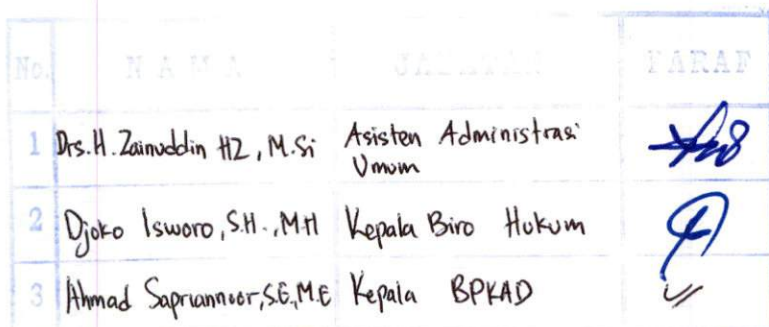 No. N A M A JABATAN PARAF
1 Drs. H. Zainuddin HZ, M.Si Asisten Administrasi
Umum
2 Djoko Isworo, S.H., M.H Kepala Biro Hukum
3 Ahmad Sapriannoor, S.E., M.E Kepala BPKAD